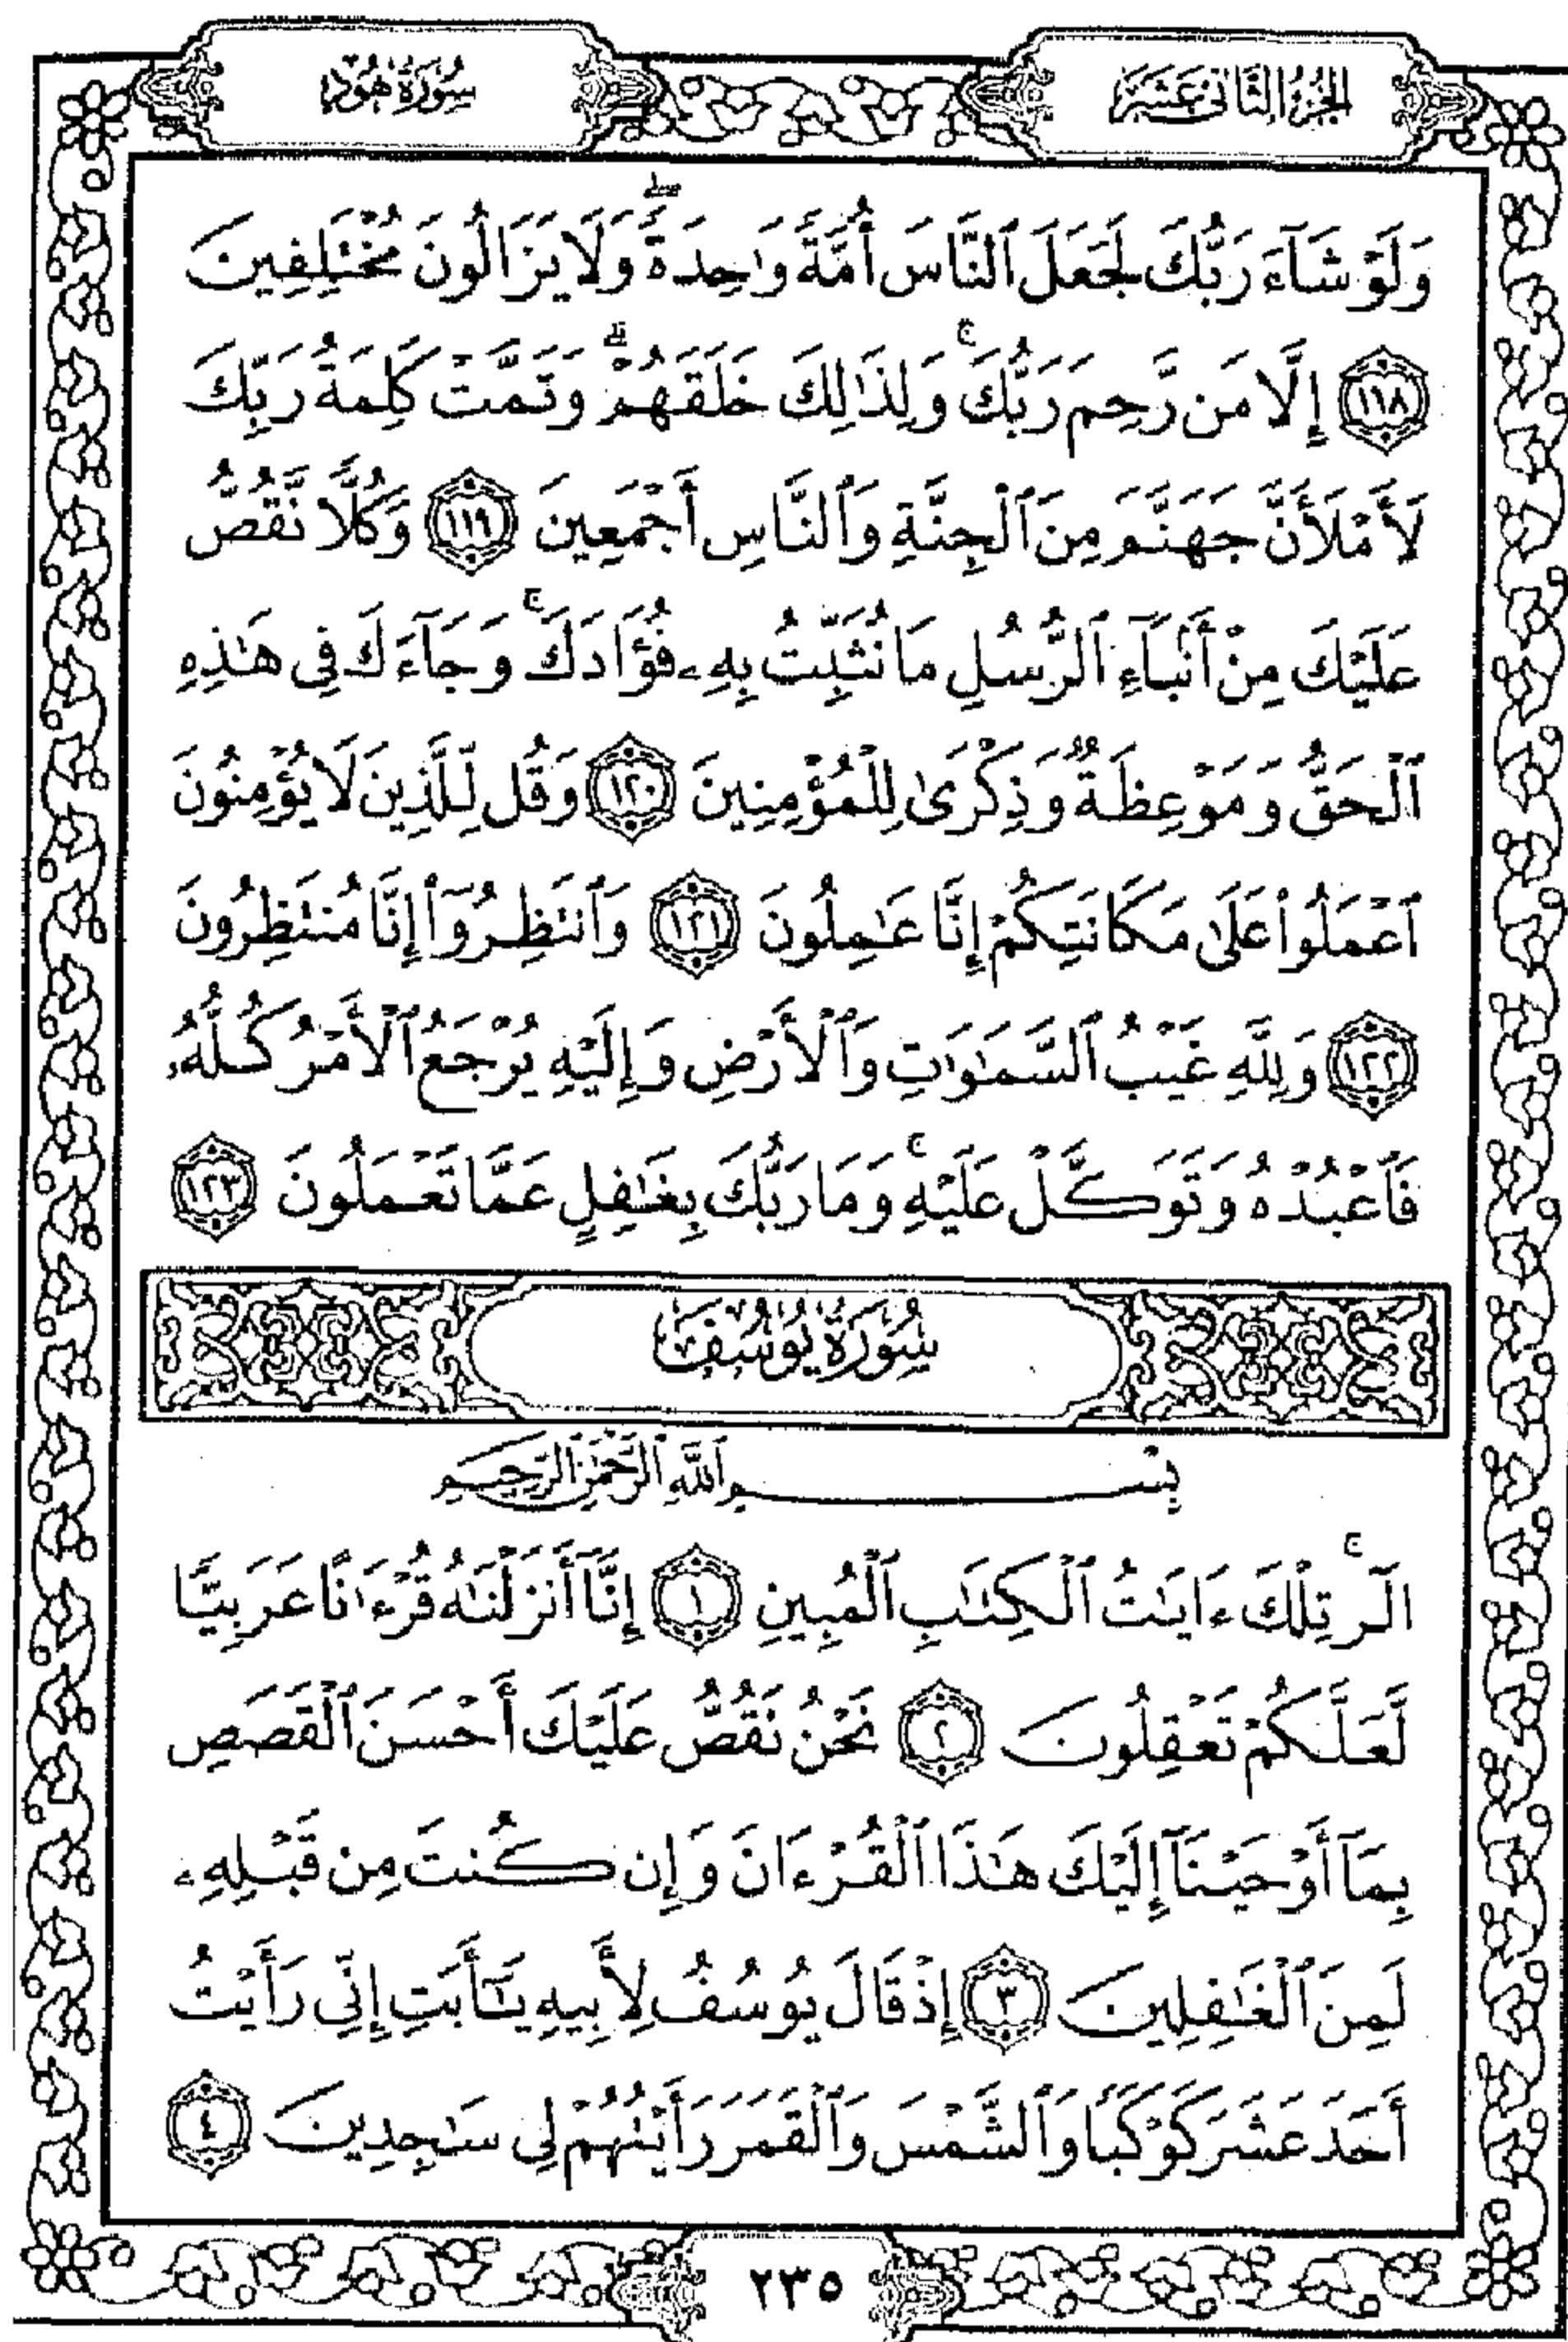 الجزء الثاني عشر
سورة هود
وَلَوْ شَآءَ رَبُّكَ لَجَعَلَ ٱلنَّاسَ أُمَّةً وَٰحِدَةً ۖ وَلَا يَزَالُونَ مُخْتَلِفِينَ
﴿١١٨﴾ إِلَّا مَن رَّحِمَ رَبُّكَ ۚ وَلِذَٰلِكَ خَلَقَهُمْ ۗ وَتَمَّتْ كَلِمَةُ رَبِّكَ
لَأَمْلَأَنَّ جَهَنَّمَ مِنَ ٱلْجِنَّةِ وَٱلنَّاسِ أَجْمَعِينَ ﴿١١٩﴾ وَكُلًّا نَّقُصُّ
عَلَيْكَ مِنْ أَنۢبَآءِ ٱلرُّسُلِ مَا نُثَبِّتُ بِهِۦ فُؤَادَكَ ۚ وَجَآءَكَ فِى هَٰذِهِ
ٱلْحَقُّ وَمَوْعِظَةٌ وَذِكْرَىٰ لِلْمُؤْمِنِينَ ﴿١٢٠﴾ وَقُل لِّلَّذِينَ لَا يُؤْمِنُونَ
ٱعْمَلُوا۟ عَلَىٰ مَكَانَتِكُمْ إِنَّا عَٰمِلُونَ ﴿١٢١﴾ وَٱنتَظِرُوٓا۟ إِنَّا مُنتَظِرُونَ
﴿١٢٢﴾ وَلِلَّهِ غَيْبُ ٱلسَّمَٰوَٰتِ وَٱلْأَرْضِ وَإِلَيْهِ يُرْجَعُ ٱلْأَمْرُ كُلُّهُۥ
فَٱعْبُدْهُ وَتَوَكَّلْ عَلَيْهِ ۚ وَمَا رَبُّكَ بِغَٰفِلٍ عَمَّا تَعْمَلُونَ ﴿١٢٣﴾
سُورَةُ يُوسُفَ
بِسْمِ ٱللَّهِ ٱلرَّحْمَٰنِ ٱلرَّحِيمِ
الٓر ۚ تِلْكَ ءَايَٰتُ ٱلْكِتَٰبِ ٱلْمُبِينِ ﴿١﴾ إِنَّآ أَنزَلْنَٰهُ قُرْءَٰنًا عَرَبِيًّا
لَّعَلَّكُمْ تَعْقِلُونَ ﴿٢﴾ نَحْنُ نَقُصُّ عَلَيْكَ أَحْسَنَ ٱلْقَصَصِ
بِمَآ أَوْحَيْنَآ إِلَيْكَ هَٰذَا ٱلْقُرْءَانَ وَإِن كُنتَ مِن قَبْلِهِۦ
لَمِنَ ٱلْغَٰفِلِينَ ﴿٣﴾ إِذْ قَالَ يُوسُفُ لِأَبِيهِ يَٰٓأَبَتِ إِنِّى رَأَيْتُ
أَحَدَ عَشَرَ كَوْكَبًا وَٱلشَّمْسَ وَٱلْقَمَرَ رَأَيْتُهُمْ لِى سَٰجِدِينَ ﴿٤﴾
٢٣٥